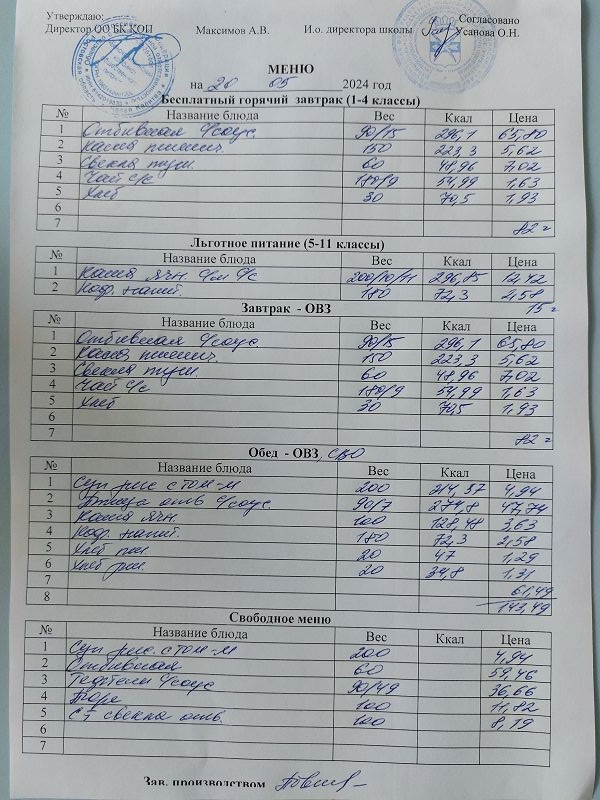 Утверждаю:
Согласовано
Директор ОО БК КОП Максимов А.В. И.о. директора школы Усанова О.Н.
МЕНЮ
на 20 05 2024 год
Бесплатный горячий завтрак (1-4 классы)
№ Название блюда Вес Ккал Цена
1 Отбивная с/соус. 90/15 296,1 65,80
2 Каша пшенич. 150 223,3 5,62
3 Свекла туш. 60 48,96 7,02
4 Чай с/с 180/9 54,99 1,63
5 Хлеб 30 70,5 1,93
6
7 82=
Льготное питание (5-11 классы)
№ Название блюда Вес Ккал Цена
1 Каша ячн. с/м с/с 296,85 12,42
2 Коф. напит. 180 72,3 2,58
15=
Завтрак - ОВЗ
№ Название блюда Вес Ккал Цена
1 Отбивная с/соус 90/15 296,1 65,80
2 Каша пшенич. 150 223,3 5,62
3 Свекла туш. 60 48,96 7,02
4 Чай с/с 180/9 54,99 1,63
5 Хлеб 30 70,5 1,93
6
7 82=
Обед - ОВЗ, СВО
№ Название блюда Вес Ккал Цена
1 Суп рис. с том-м 200 214,37 4,94
2 Птица отв с/соус. 90/7 274,8 47,74
3 Каша ячн. 100 128,48 3,63
4 Коф. напит. 180 72,3 2,58
5 Хлеб пш. 20 47 1,29
6 Хлеб рж. 20 34,8 1,31
7 61,49
8 143,49
Свободное меню
№ Название блюда Вес Ккал Цена
1 Суп рис. с том-м 200 4,94
2 Отбивная 60 59,46
3 Тефтели с/соус 90/49 36,66
4 Пюре 100 11,82
5 С-т свекла отв. 100 8,19
6
7
Зав. производством